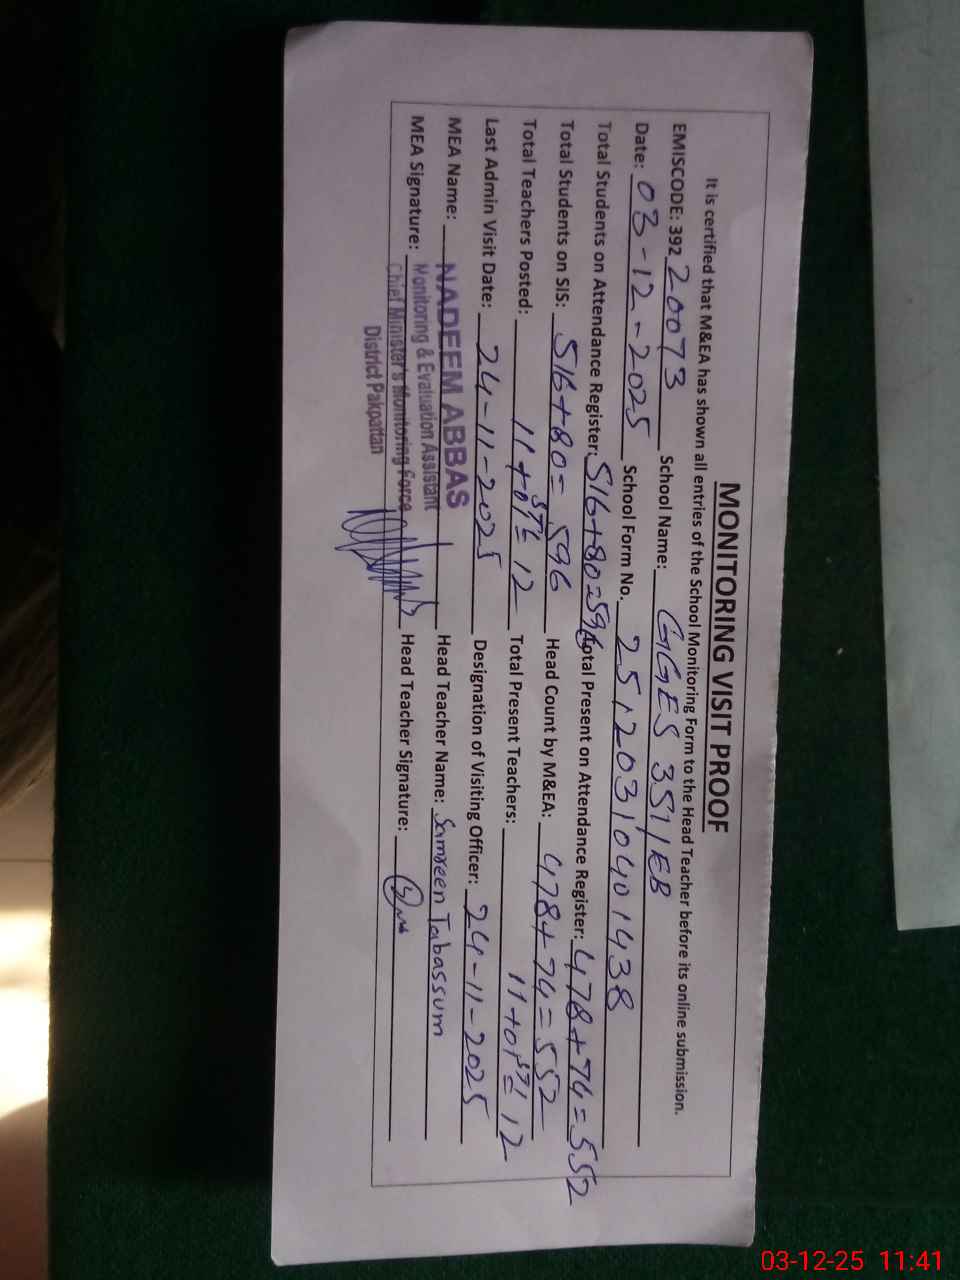 MONITORING VISIT PROOF
It is certified that M&EA has shown all entries of the School Monitoring Form to the Head Teacher before its online submission.
EMISCODE: 392 20073 School Name: GGES 351/EB
Date: 03-12-2025 School Form No. 25120310401438
Total Students on Attendance Register: 516+80=596 Total Present on Attendance Register: 478+74=552
Total Students on SIS: 516+80= 596 Head Count by M&EA: 478+74=552
Total Teachers Posted: 11+01 STI= 12 Total Present Teachers: 11+01 STI= 12
Last Admin Visit Date: 24-11-2025 Designation of Visiting Officer: 24-11-2025
MEA Name: NADEEM ABBAS Head Teacher Name: Samreen Tabassum
Monitoring & Evaluation Assistant
MEA Signature: Chief Minister's Monitoring Force Head Teacher Signature:
District Pakpattan
03-12-25 11:41